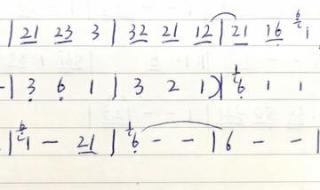 | 21 23 3 | 32 21 12 | 21 16 1
- | 3 6 1 | 3 2 1 | 6 1 1
| 1 - 21 | 6 - - | 6 - - |